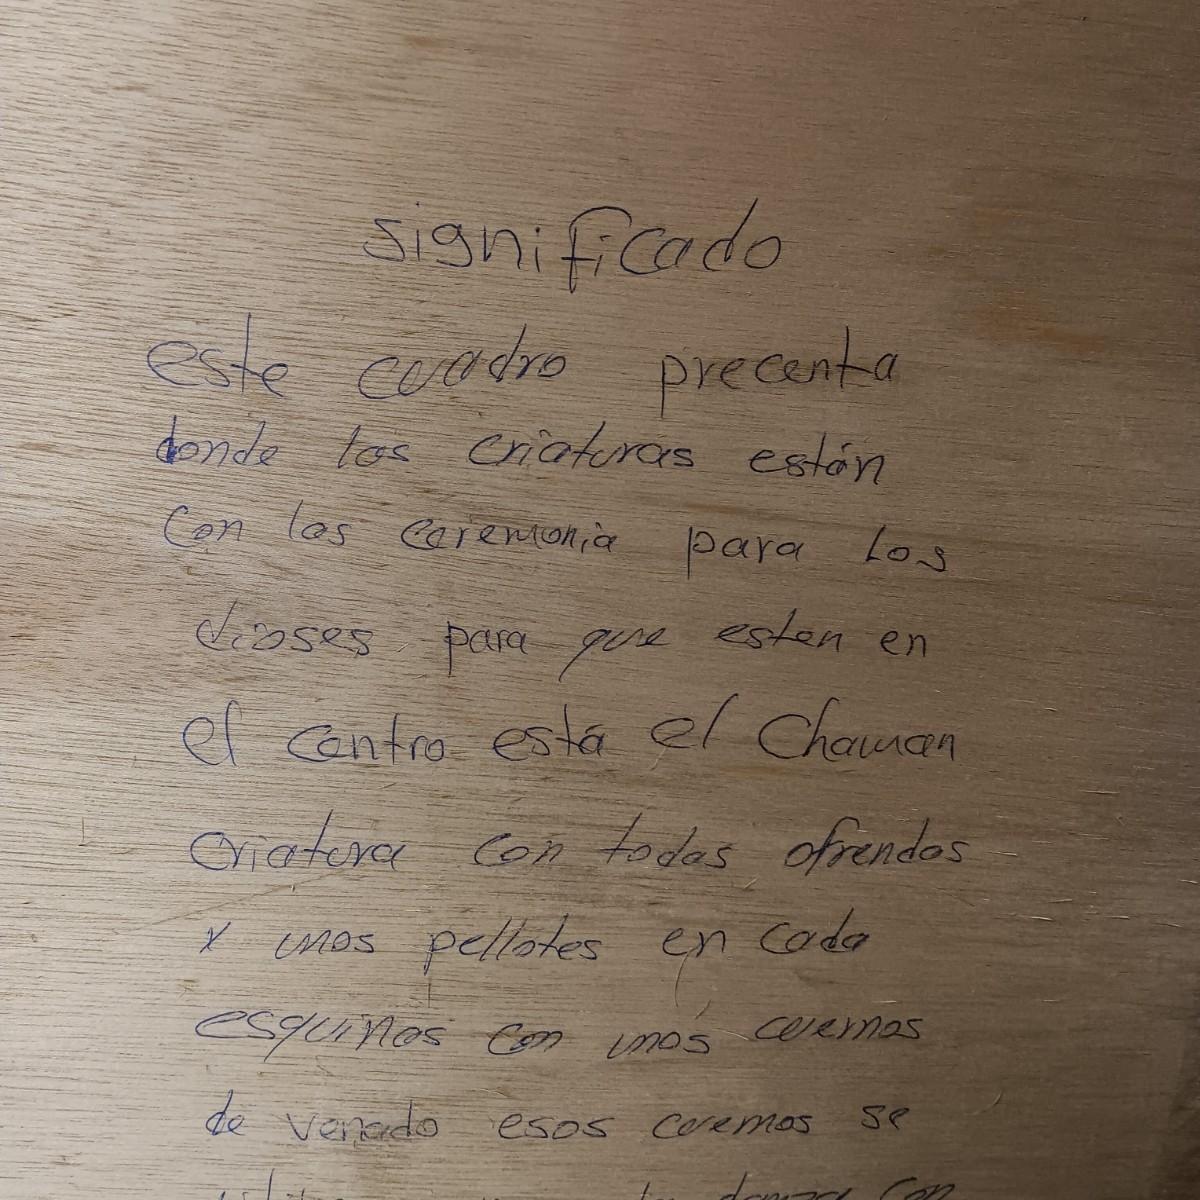 significado
este cuadro precenta
donde las criaturas están
con las ceremonia para los
dioses para que esten en
el centro está el Chaman
criatura con todas ofrendas
y unos pellotes en cada
esquinas con unos cuernos
de venado esos cuernos se
danza con